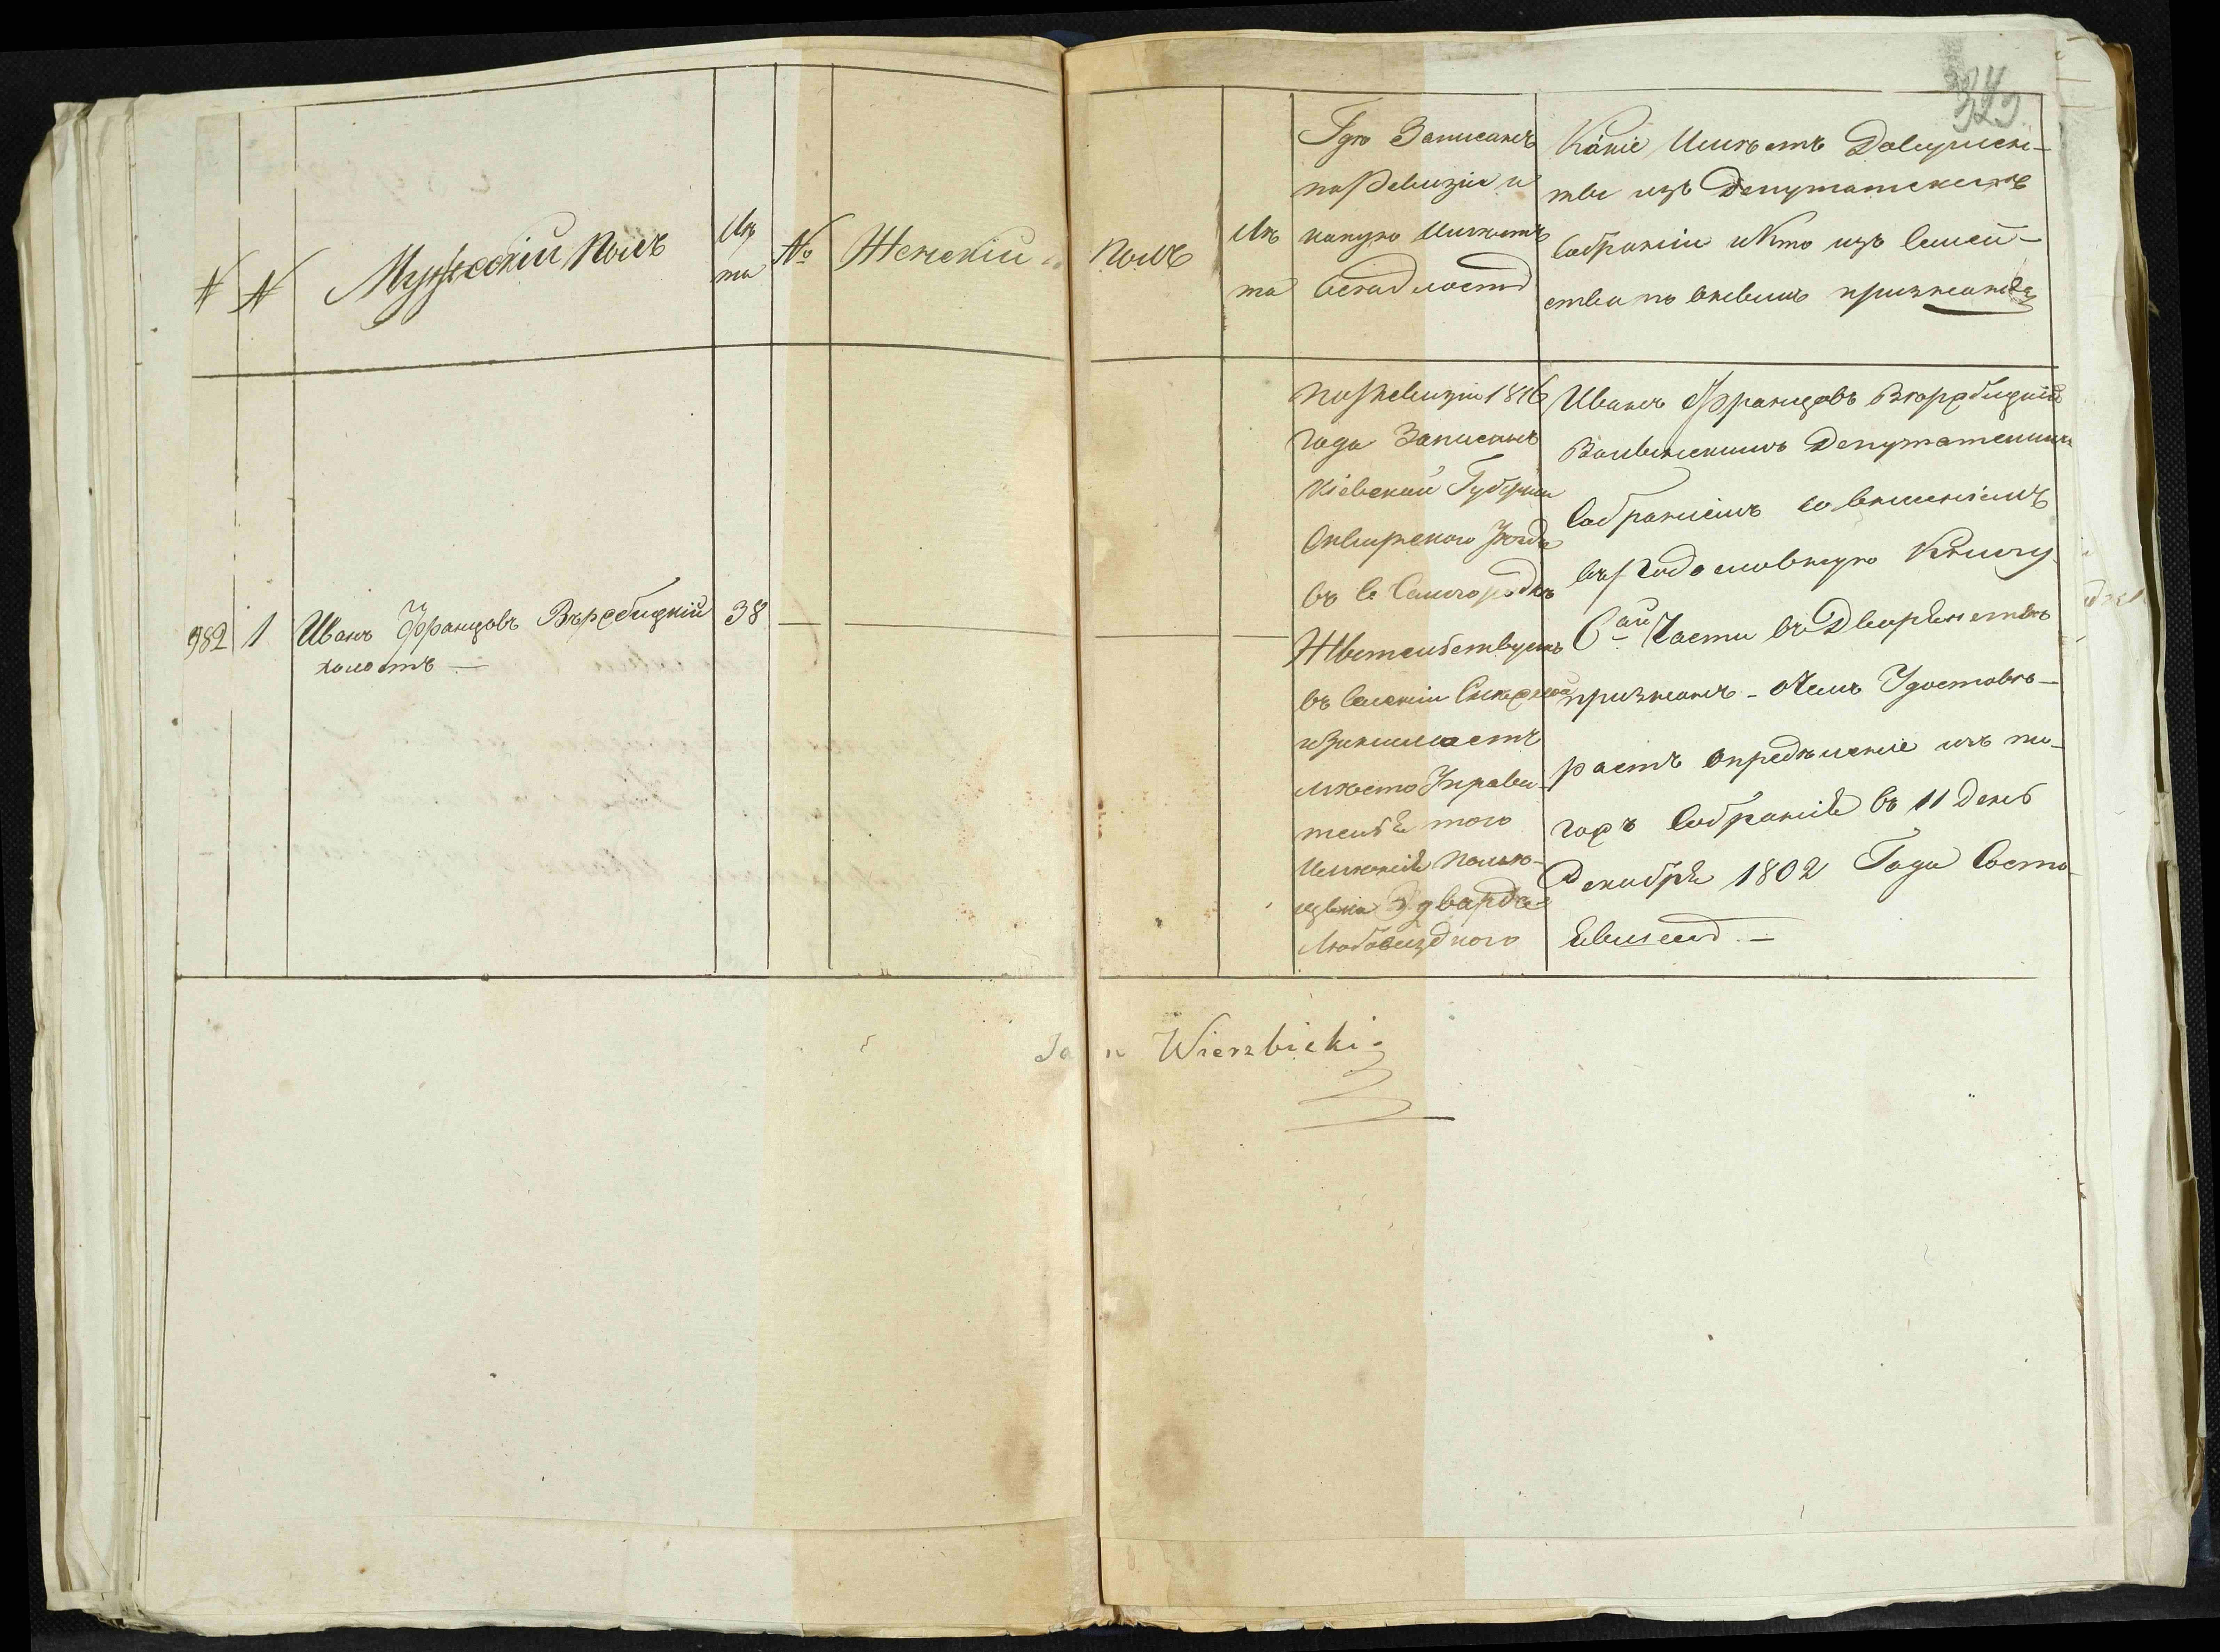 325
N N Мужескій полъ Лѣ
та
№ Женскій полъ Лѣ
та
Гдѣ Записанъ
по Ревизіи и
какую Имѣетъ
Осѣдлость
Какіе Имѣетъ Докумен-
ты изъ Депутатскихъ
Собраній и Кто изъ Семей-
ства по онымъ признанъ
982 1 Иванъ Францовъ Вѣржбицкій 38
холостъ —
по Ревизіи 1816
года Записанъ
Кіевской Губерніи
Сквирского уезда
въ с Самгородкѣ
Жительствуетъ
въ Селеніи
и Занимаетъ
мѣсто Управи-
теля того
Имѣнія Помѣ-
щика Эдварда
Любовицкого
Иванъ Францовъ Вѣржбицкій
Волынскимъ Депутатскимъ
Собраніемъ со внесеніемъ
въ Родословную Книгу
6ай Части въ Дворянствѣ
признанъ - о чемъ Удостовѣ-
раетъ Опредѣленіе изъ то-
гожъ Собранія въ 11 день
Декабря 1802 Года Состо-
явшееся —
Jan Wierzbicki